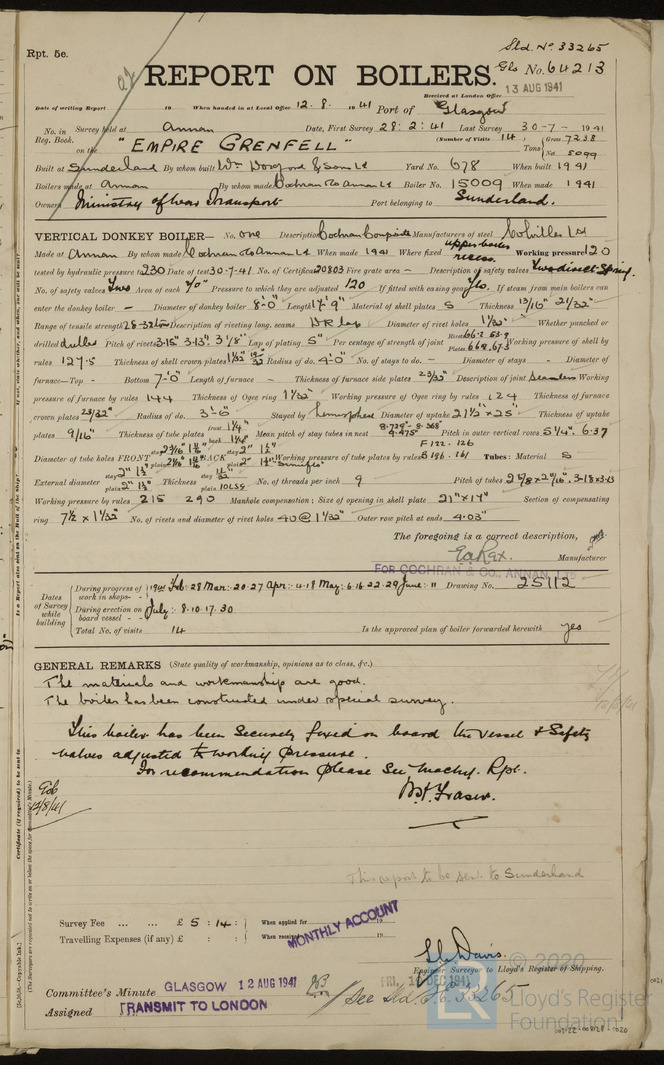 Rpt. 5c.
Sld. No. 33265
REPORT ON BOILERS.
Gls No. 64213
Received at London Office 13 AUG 1941
Date of writing Report 19 When handed in at Local Office 12.8. 1941 Port of Glasgow
No. in Reg. Book. Survey held at Annan Date, First Survey 28:2:41 Last Survey 30-7-1941
(Number of Visits 14)
on the "EMPIRE GRENFELL" Tons Gross 7238 Net 5099
Built at Sunderland By whom built Wm Doxford & Sons Ld Yard No. 678 When built 1941
Boilers made at Annan By whom made Cochran & Co Annan Ld Boiler No. 15009 When made 1941
Owners Ministry of War Transport Port belonging to Sunderland.
VERTICAL DONKEY BOILER— No. one Description Cochran Composite Manufacturers of steel Colvilles Ld
Made at Annan By whom made Cochran & Co Annan Ld When made 1941 Where fixed upper boiler recess. Working pressure 120
tested by hydraulic pressure to 230 Date of test 30-7-41 No. of Certificate 20803 Fire grate area – Description of safety valves Two direct Spring.
No. of safety valves Two Area of each Pressure to which they are adjusted 120 If fitted with easing gear Yes. If steam from main boilers can
enter the donkey boiler – Diameter of donkey boiler 8'-0" Length 17'-9" Material of shell plates S Thickness 13/16" 21/32"
Range of tensile strength 28-32 tons Description of riveting long. seams D R lap Diameter of rivet holes 1 1/32" Whether punched or
drilled drilled Pitch of rivets 3.15" 3.13" 3 1/8" Lap of plating 5" Per centage of strength of joint Rivets 66.2 53.9 Plates 66.8, 67.3 Working pressure of shell by
rules 127.5 Thickness of shell crown plates Radius of do. 4'-0" No. of stays to do. – Diameter of stays – Diameter of
furnace—Top – Bottom 7'-0" Length of furnace – Thickness of furnace side plates 23/32" Description of joint Seamless Working
pressure of furnace by rules 144 Thickness of Ogee ring 1 1/32" Working pressure of Ogee ring by rules 124 Thickness of furnace
crown plates 23/32" Radius of do. 3'-6" Stayed by hemisphere Diameter of uptake 21 1/2" x 25" Thickness of uptake
plates 9/16" Thickness of tube plates front 1 1/4" back Mean pitch of stay tubes in nest Pitch in outer vertical rows 5 1/4" 6.37
Diameter of tube holes FRONT stay plain BACK stay plain Working pressure of tube plates by rules F 192. 126 B 186. 161 Tubes: Material S
External diameter stay 2" plain 2" Thickness stay plain 10 LSG No. of threads per inch 9 Pitch of tubes
Working pressure by rules 215 290 Manhole compensation: Size of opening in shell plate 21" x 17" Section of compensating
ring 7 1/2 x 1 1/32" No. of rivets and diameter of rivet holes 40 @ 1 1/32" Outer row pitch at ends 4.03"
The foregoing is a correct description,
FOR COCHRAN & CO., ANNAN, LTD Manufacturer
Dates of Survey while building
During progress of work in shops - - 1941 Feb. 28 Mar: 20.27 Apr: 4.18 May: 6.16 22.29 June: 11 Drawing No. 25112
During erection on board vessel - - July: 8.10.17.30
Total No. of visits 14 Is the approved plan of boiler forwarded herewith yes
GENERAL REMARKS (State quality of workmanship, opinions as to class, &c.)
The materials and workmanship are good.
The boiler has been constructed under special survey.
This boiler has been securely fixed on board the vessel & Safety
valves adjusted to working pressure.
For recommendation please see Machy. Rpt.
Fraser.
12/8/41
This report to be sent to Sunderland
Survey Fee ... ... £ 5 : 14 : When applied for 19
Travelling Expenses (if any) £ : : When received 19
MONTHLY ACCOUNT
Davis.
Engineer Surveyor to Lloyd's Register of Shipping.
Committee's Minute GLASGOW 12 AUG 1941
FRI, DEC 1941
See Sld 33265
Assigned TRANSMIT TO LONDON
© 2020
Lloyd's Register
Foundation